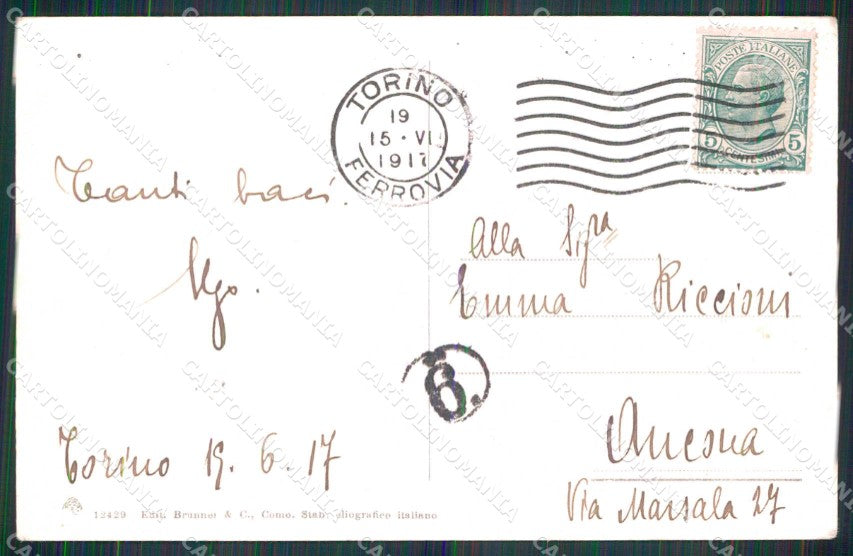 TORINO
19
15 · VI
1917
FERROVIA
POSTE ITALIANE
5 5
CENTESIMI
Tanti baci.
Ugo.
Torino 15. 6. 17
Alla Sigra
Emma Riccioni
Ancona
Via Marsala 27
6.
12429 Edit. Brunner & C., Como. Stab. eliografico italiano
CARTOLINOMANIA